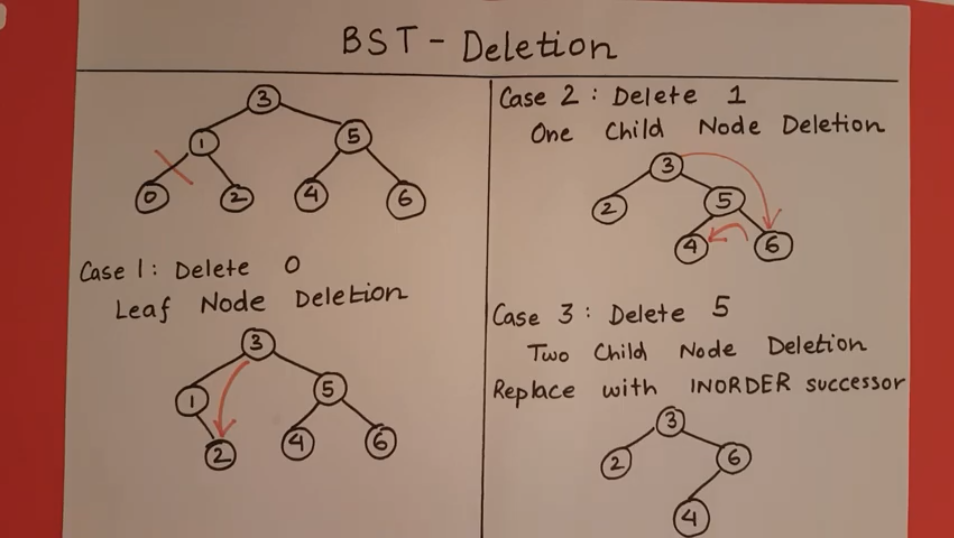 BST - Deletion
3
1 5
0 2 4 6
Case 1: Delete 0
Leaf Node Deletion
3
1 5
2 4 6
Case 2 : Delete 1
One Child Node Deletion
3
2 5
4 6
Case 3 : Delete 5
Two Child Node Deletion
Replace with INORDER successor
3
2 6
4